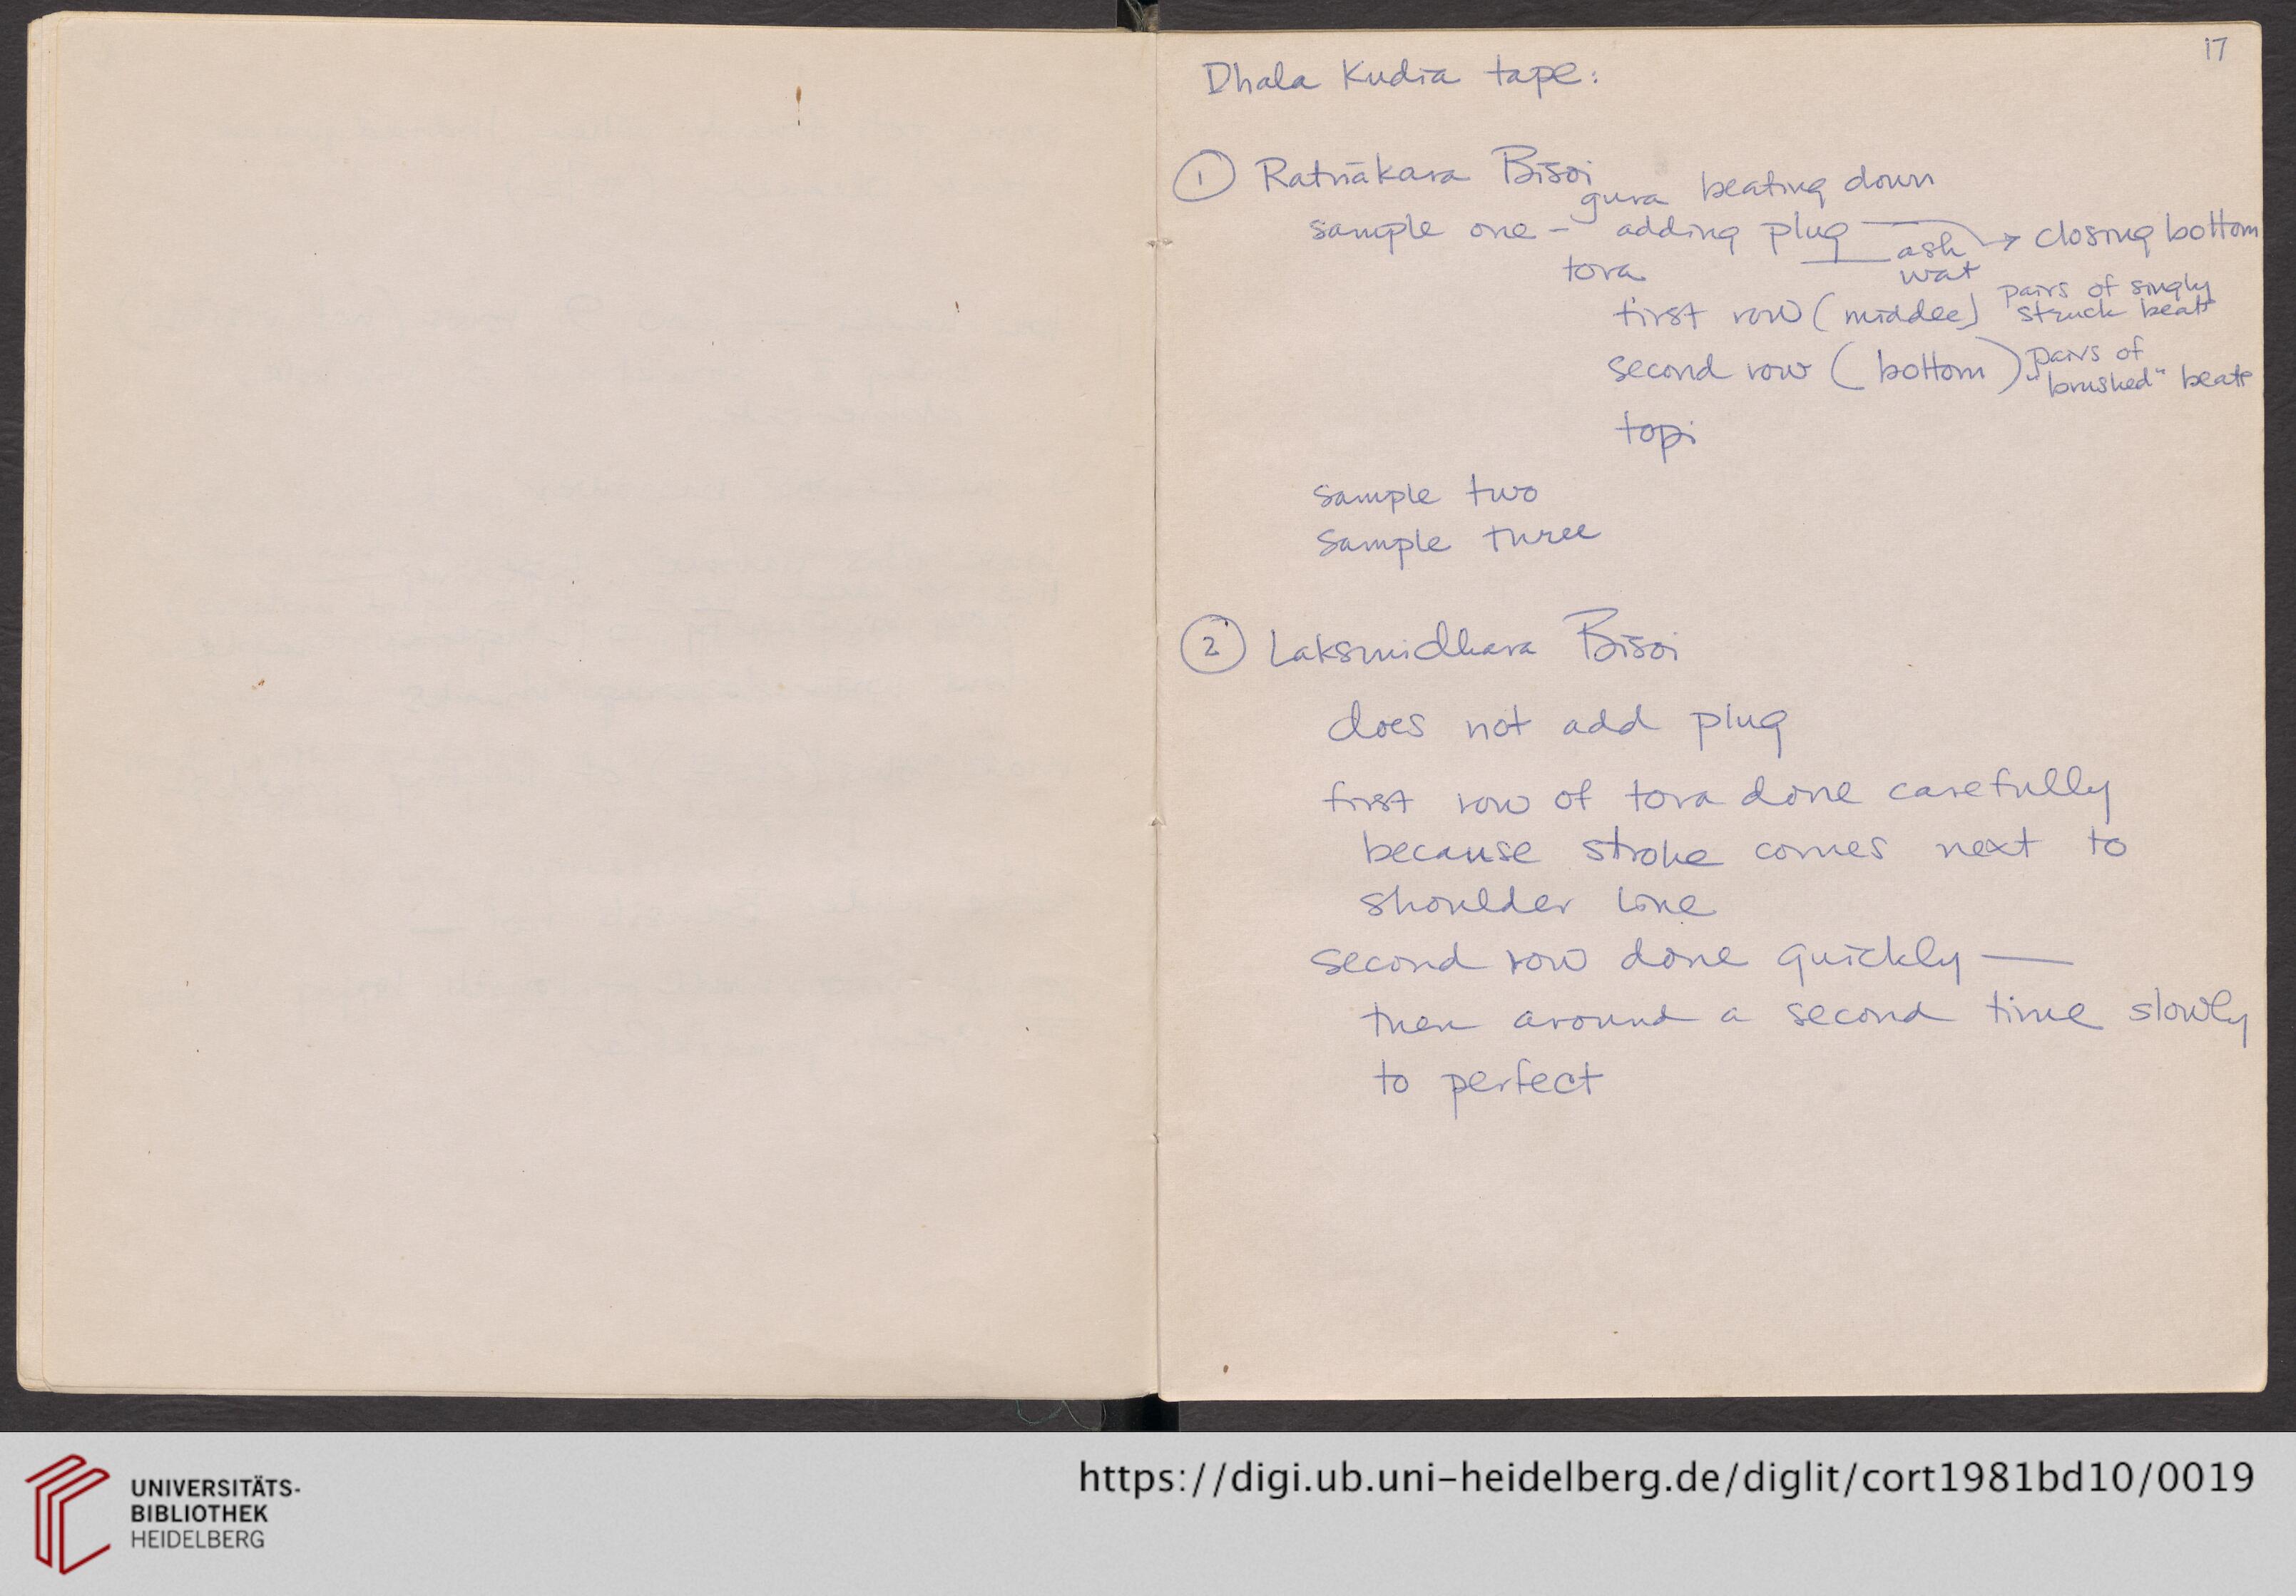 17
Dhala Kudia tape:
① Ratnākara Bisoi
gura beating down
sample one – adding plug → closing bottom
ash
wat
tora
first row (middle) pairs of singly
struck beats
second row (bottom) pairs of
"brushed" beats
topi
sample two
sample three
② Laksmidhara Bisoi
does not add plug
first row of tora done carefully
because stroke comes next to
shoulder line
second row done quickly —
then around a second time slowly
to perfect
UNIVERSITÄTS-
BIBLIOTHEK
HEIDELBERG
https://digi.ub.uni-heidelberg.de/diglit/cort1981bd10/0019